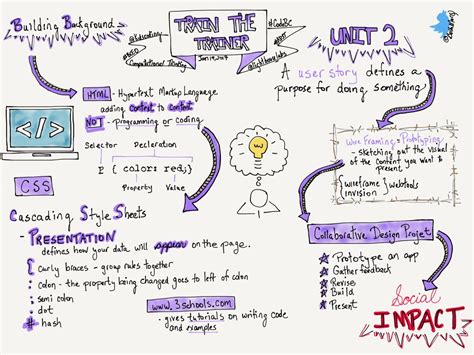 Building Background
TRAIN THE
TRAINER
Computational Thinking
Jan 19, 2019
UNIT 2
A user story defines a
purpose for doing something
HTML - Hypertext Markup Language
adding Content to Context
NOT - programming or coding
Selector Declaration
P { color: red;}
Property Value
</>
CSS
Cascading Style Sheets
- PRESENTATION
defines how your data will appear on the page.
{ curly braces - group rules together
: colon - the property being changed goes to left of colon
; semi colon
. dot
# hash
www.3schools.com
- gives tutorials on writing code
and examples
Wire Framing + Prototyping
- Sketching out the visual
of the content you want to
present
{wireframe} webtools
{invision
Collaborative Design Projet
Prototype an app
Gather feedback
Revise
Build
Present
Social
IMPACT